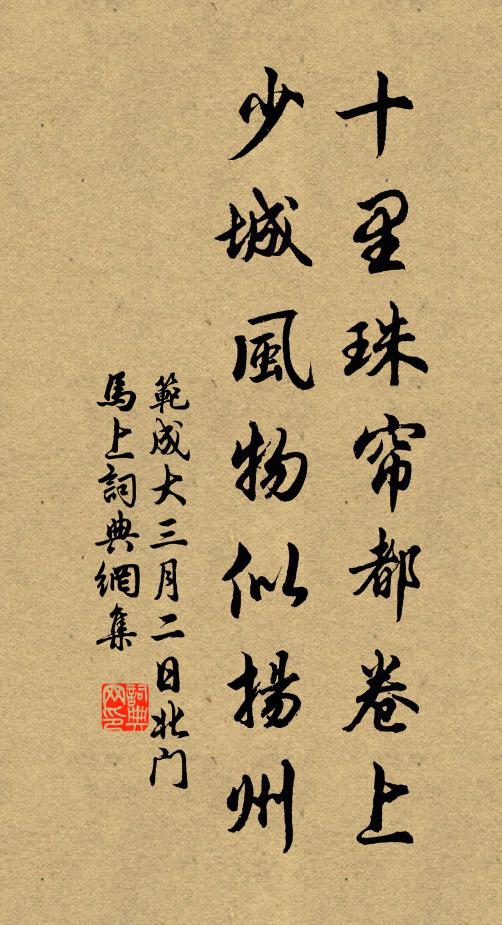 十里珠帘都卷上
少城風物似揚州
範成大三月二日北门
馬上詞典網集
詞典
网印